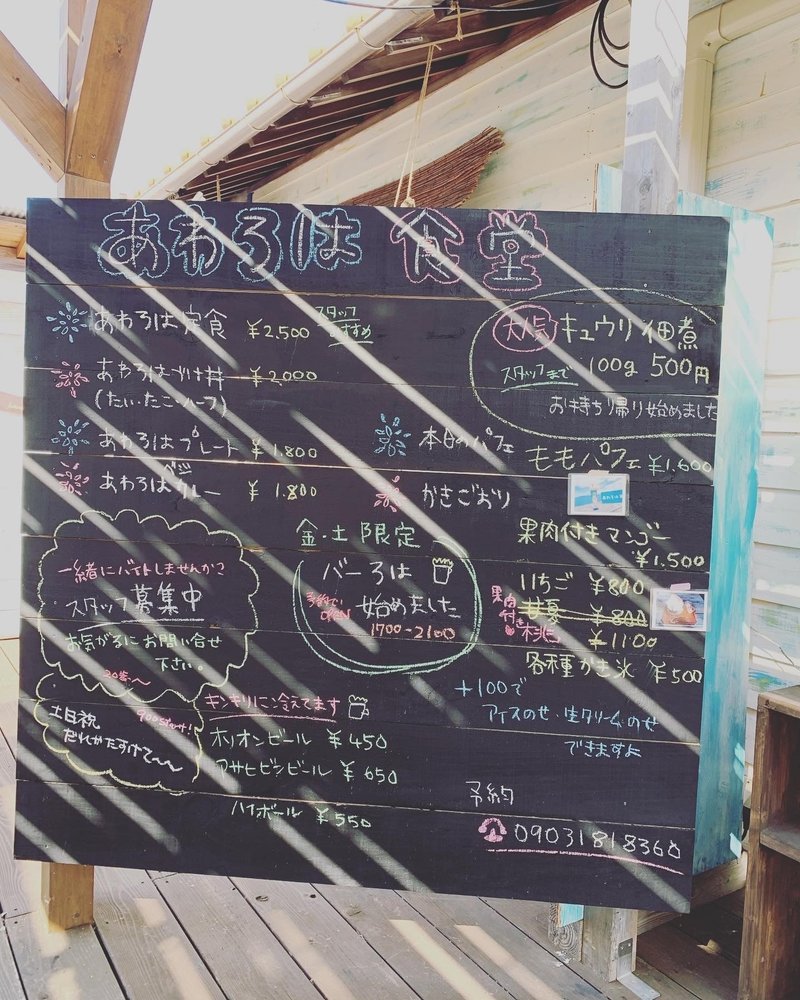 あわろは食堂
あわろは定食 ¥2,500 スタッフおすすめ
あわろはづけ丼 ¥2,000
(たい・たこ・ハーフ)
あわろはプレート ¥1,800
あわろはカレー ¥1,800
大人気 キュウリ佃煮
スタッフまで 100g 500円
お持ち帰り始めました
本日のパフェ ももパフェ ¥1,600
かきごおり
果肉付きマンゴー
¥1,500
いちご ¥800
¥800
果肉付き 桃 ¥1100
各種かき氷 ¥500
+100で
アイスのせ・生クリームのせ
できますよ
金・土限定
バーろは
始めました
1700-2100
一緒にバイトしませんか?
スタッフ募集中
お気がるにお問い合せ
下さい。
土日祝
だれかたすけて〜〜
キンキンに冷えてます
オリオンビール ¥450
アサヒビンビール ¥650
ハイボール ¥550
予約
09031818360